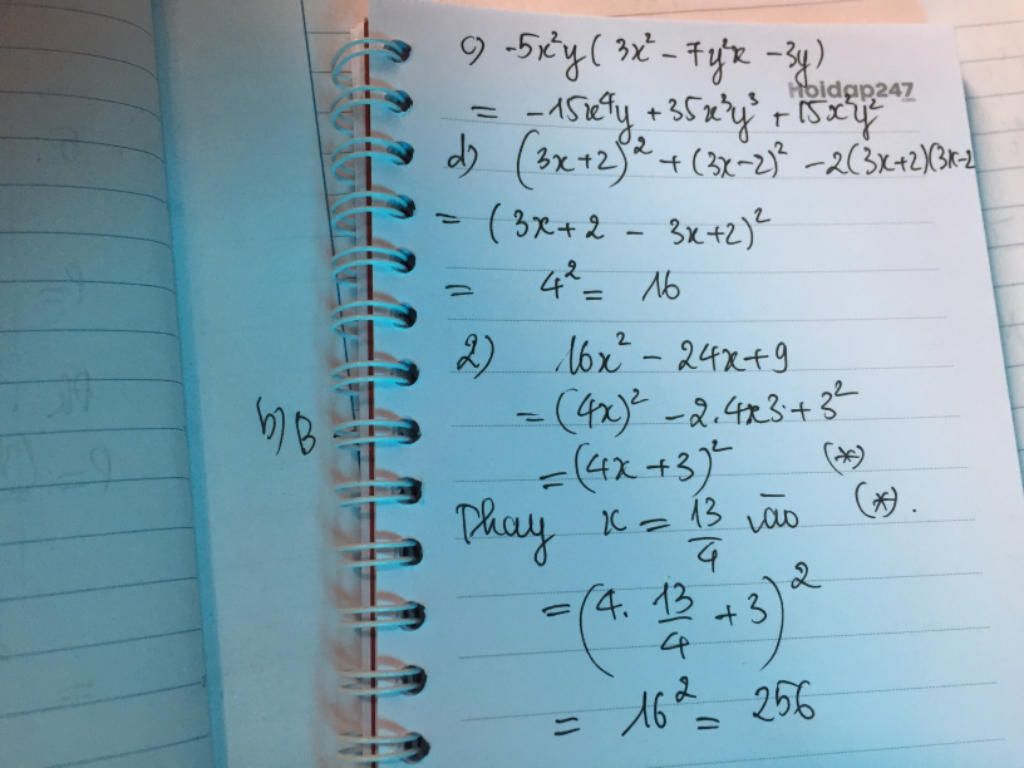 c) -5x²y ( 3x² - 7y²x - 3y)
Hoidap247
= -15x⁴y + 35x³y³ + 15x²y²
d) (3x+2)² + (3x-2)² - 2(3x+2)(3x-2
= (3x+2 - 3x+2)²
= 4² = 16
2) 16x² - 24x+9
= (4x)² - 2.4x3 + 3²
b) B
= (4x +3)² (*)
Thay x = 13/4 vào (*).
= (4. 13/4 + 3)²
= 16² = 256